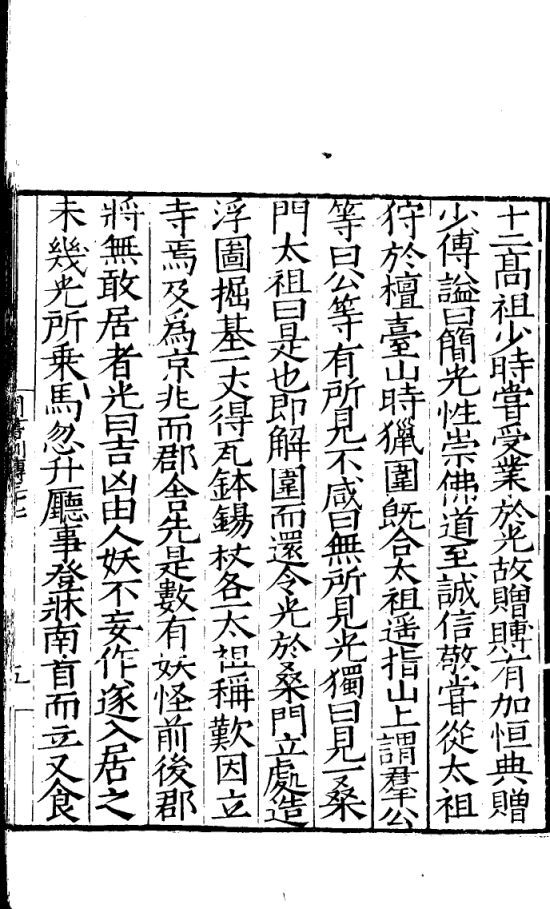 十二高祖少時嘗受業於光故贈賻有加恒典贈
少傅謚曰簡光性崇佛道至誠信敬嘗從太祖
狩於檀臺山時獵圍旣合太祖遥指山上謂羣公
等曰公等有所見不咸曰無所見光獨曰見一桑
門太祖曰是也即解圍而還令光於桑門立處造
浮圖掘基一丈得瓦鉢錫杖各一太祖稱歎因立
寺焉及爲京兆而郡舍先是數有妖怪前後郡
將無敢居者光曰吉凶由人妖不妄作遂入居之
未幾光所乘馬忽升廳事登牀南首而立又食
周書列傳三十七
五